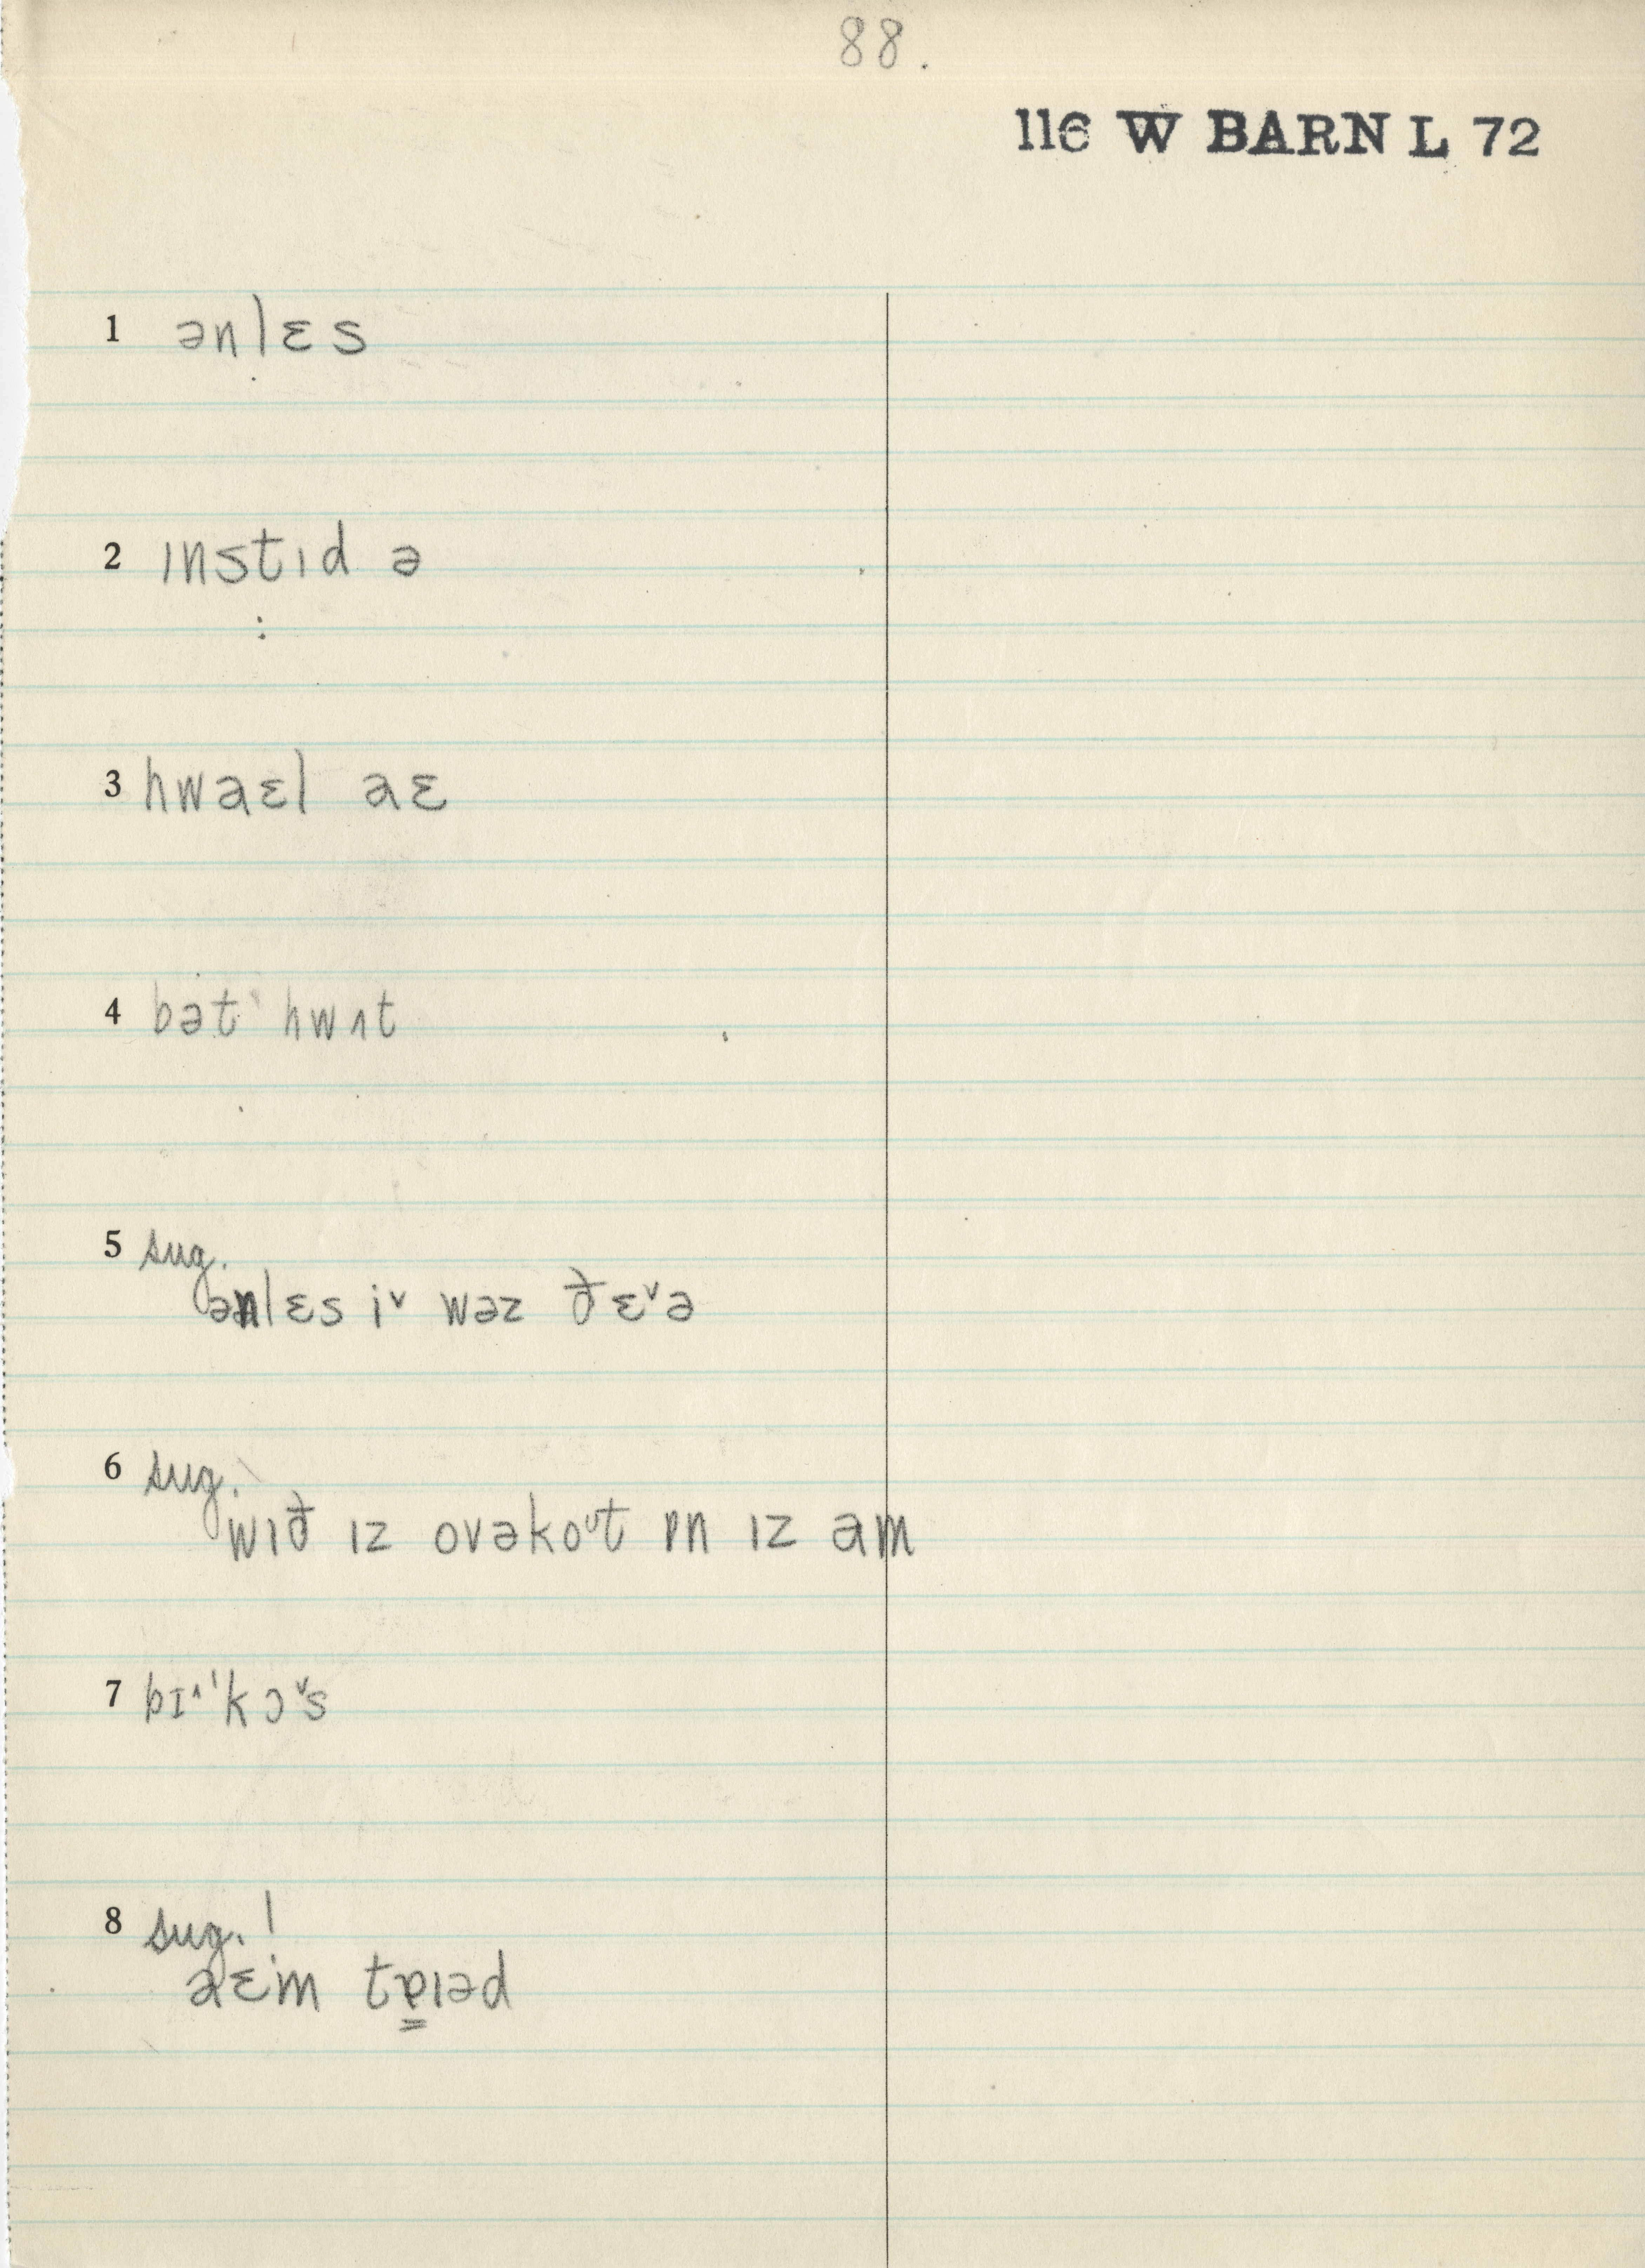 88.
116 W BARN L 72
1 ənlɛs
2 ɪnstɪd ə
3 hwaɛl aɛ
4 bət hwʌt
5 sug.
ənlɛs i˅ wəz ðɛ˅ə
6 sug.
wɪð ɪz ovəkoᶷt ɒn ɪz am
7 bɪ˄ˈkɔ˅s
8 sug. !
aɛm tɐ̳ɪəd